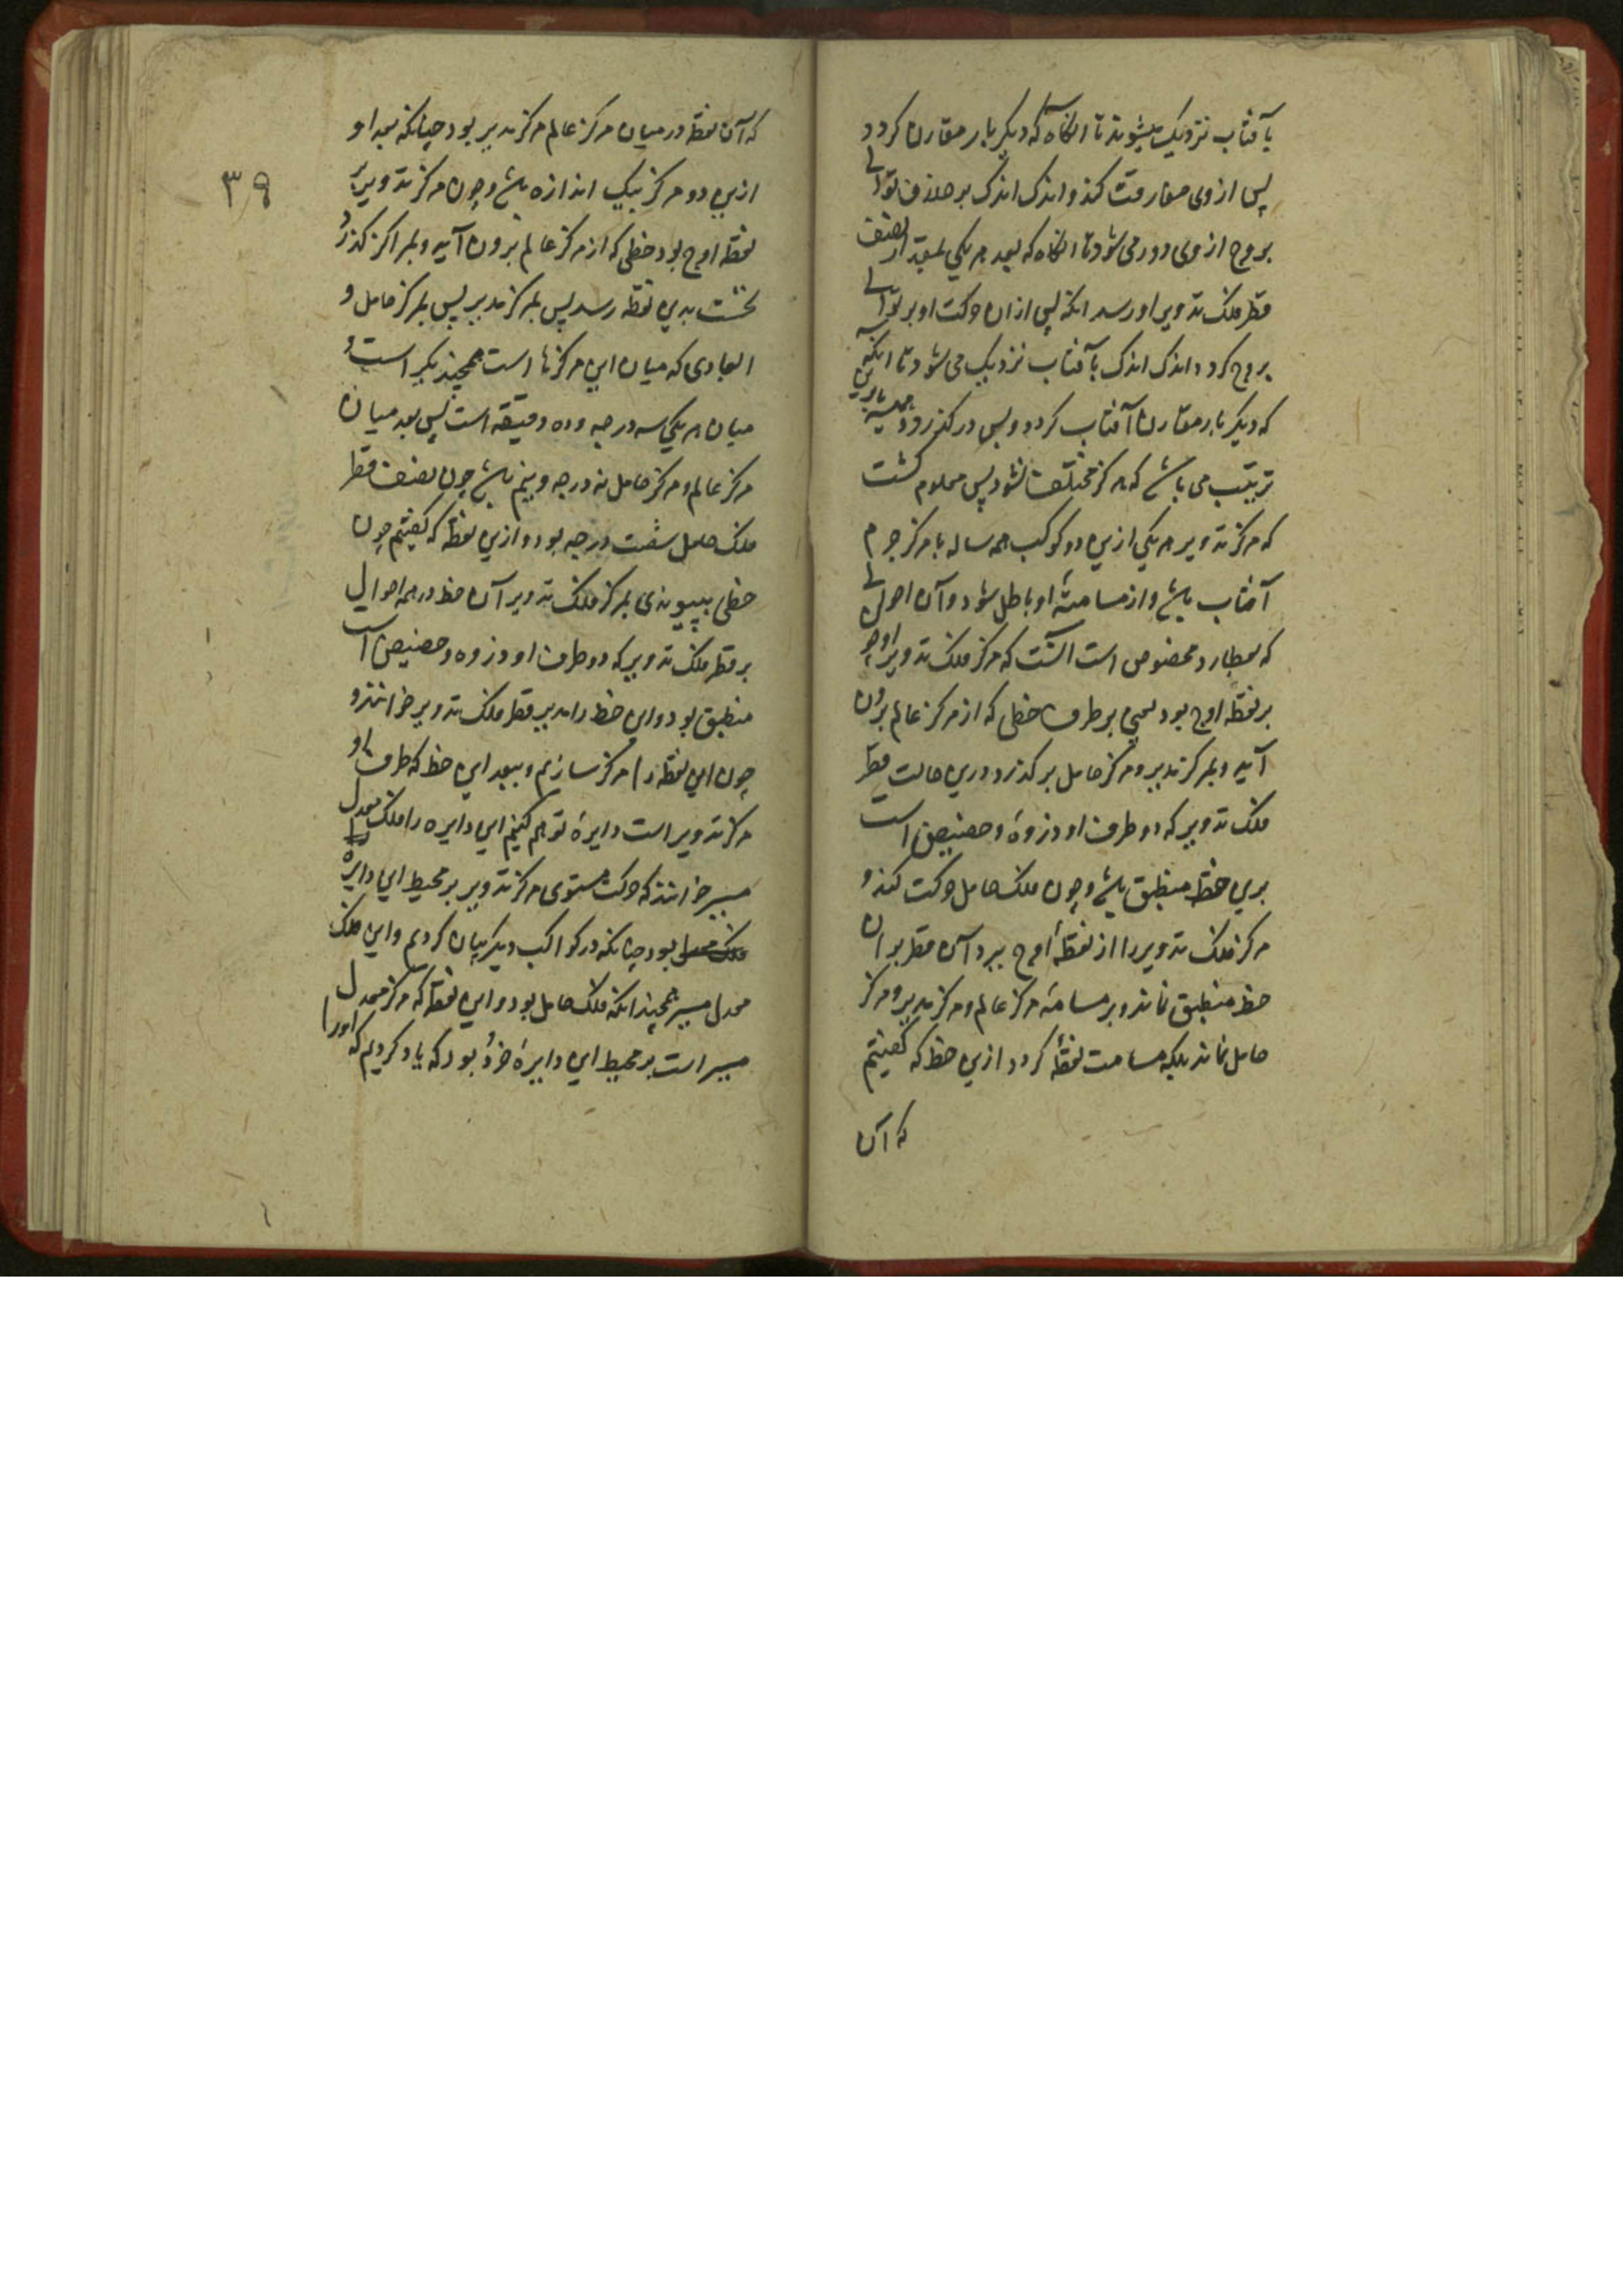 بآفتاب نزدیک میشوند تا آنگاه که دیگر بار مقارن گردد
پس از وی مفارقت کند و اندک اندک بر خلاف توالی
بروج از وی دور می شود تا آنگاه که بعد هر یکی بمقدار نصف
قطر فلک تدویر او رسد آنکه پس از آن حرکت او بر توالی
بروج گردد و اندک اندک بآفتاب نزدیک می شود تا آنکه
که دیگر بار مقارن آفتاب گردد و پس در گذرد و همیشه بدین
ترتیب می باشد که هرگز مختلف نشود پس معلوم گشت
که مرکز تدویر هر یکی ازین دو کوکب همه ساله با مرکز جرم
آفتاب باشد و از مسامتهٔ او باطل شود و آن احوالی
که بعطارد مخصوص است آنست که مرکز فلک تدویر او چو
بر نقطه اوج بود یعنی بر طرف خطی که از مرکز عالم برون
آید و بمرکز مدیر و مرکز حامل بر گذرد درین حالت قطر
فلک تدویر که دو طرف او ذروهٔ و حضیض است
برین خط منطبق باشد و چون فلک حامل حرکت کند و
مرکز فلک تدویر را از نقطهٔ اوج ببرد آن قطر بران
خط منطبق نماند و بر مسامتهٔ مرکز عالم و مرکز مدیر و مرکز
حامل نماند بلکه مسامت نقطهٔ گردد ازین خط که گفتیم
که آن
۳۹
که آن نقطه در میان مرکز عالم مرکز مدیر بود چنانکه بعد او
ازین دو مرکز بیک اندازه باشد و چون مرکز تدویر بر
نقطه اوج بود خطی که از مرکز عالم برون آید و بمراکز گذرد
نخست بدین نقطه رسد پس بمرکز مدیر پس بمرکز حامل و
ابعادی که میان این مرکزها است همچند یکدیگر است و
میان هر یکی سه درجه و ده دقیقه است پس بعد میان
مرکز عالم و مرکز حامل نه درجه و نیم باشد چون نصف قطر
فلک حامل شصت درجه بود و ازین نقطه که گفتیم چون
خطی بپیوندی بمرکز فلک تدویر آن خط در همه احوال
بر قطر فلک تدویر که دو طرف او ذروه و حضیض است
منطبق بود و این خط را مدیر قطر فلک تدویر خوانند و
چون این نقطه را مرکز سازیم و ببعد این خط که طرف او
مرکز تدویر است دایرهٔ توهم کنیم این دایره را فلک معدل
مسیر خوانند که حرکت مستوی مرکز تدویر بر محیط این دایرهٔ
بود چنانکه در کواکب دیگر بیان کردیم و این فلک
معدل مسیر همچندانکه فلک حامل بود و این نقطه که مرکز معدل
مسیر است بر محیط این دایرهٔ خرد بود که یاد کردیم که او را